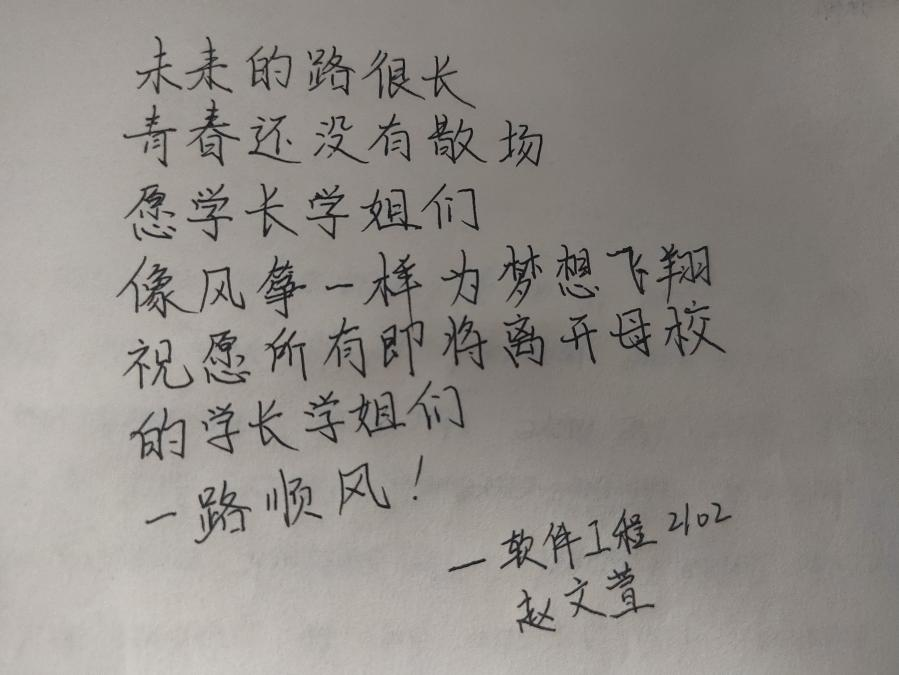 未来的路很长
青春还没有散场
愿学长学姐们
像风筝一样为梦想飞翔
祝愿所有即将离开母校
的学长学姐们
一路顺风！
—软件工程2102
赵文萱